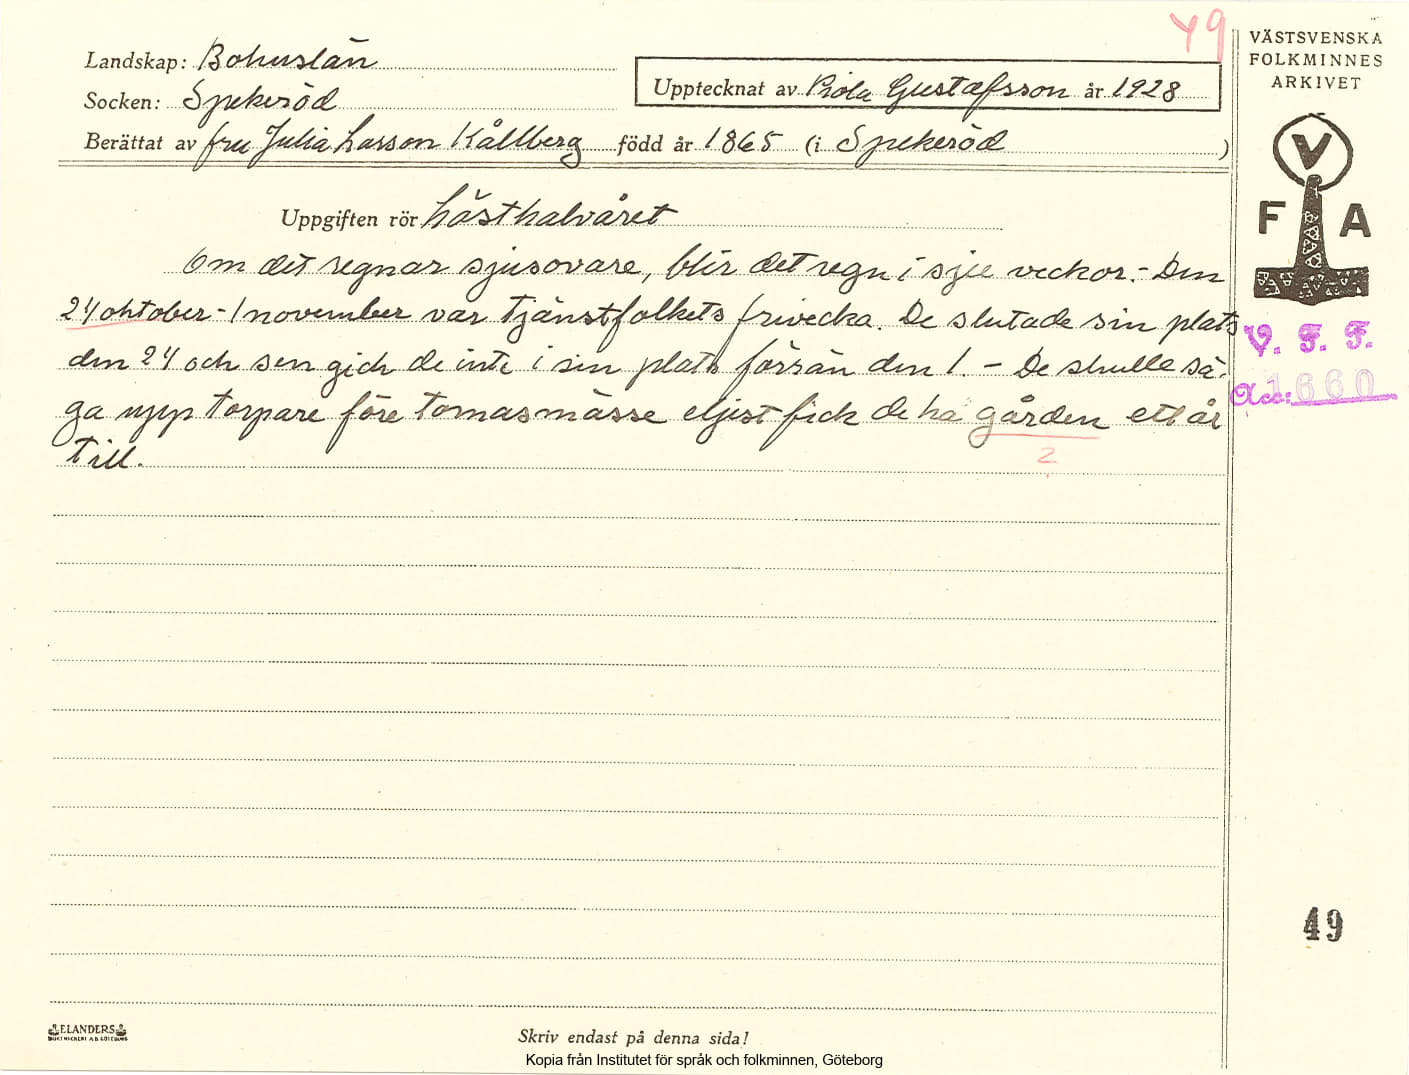 49
VÄSTSVENSKA
FOLKMINNES
ARKIVET
Landskap: Bohuslän
Upptecknat av Viola Gustafsson år 1928
Socken: Spekeröd
Berättat av fru Julia Larsson Kållberg född år 1865 (i Spekeröd )
V
F A
Uppgiften rör hösthalvåret
Om det regnar sjusovare, blir det regn i sju veckor. - Den
24 oktober - 1 november var tjänstfolkets frivecka. De slutade sin plats
den 24 och sen gick de inte i sin plats förrän den 1. - De skulle sä-
ga upp torpare före tomasmässe eljest fick de ha gården ett år
till.
2
V. F. F.
Acc: 1660
49
ELANDERS
BOKTRYCKERI A.B. GÖTEBORG
Skriv endast på denna sida!
Kopia från Institutet för språk och folkminnen, Göteborg